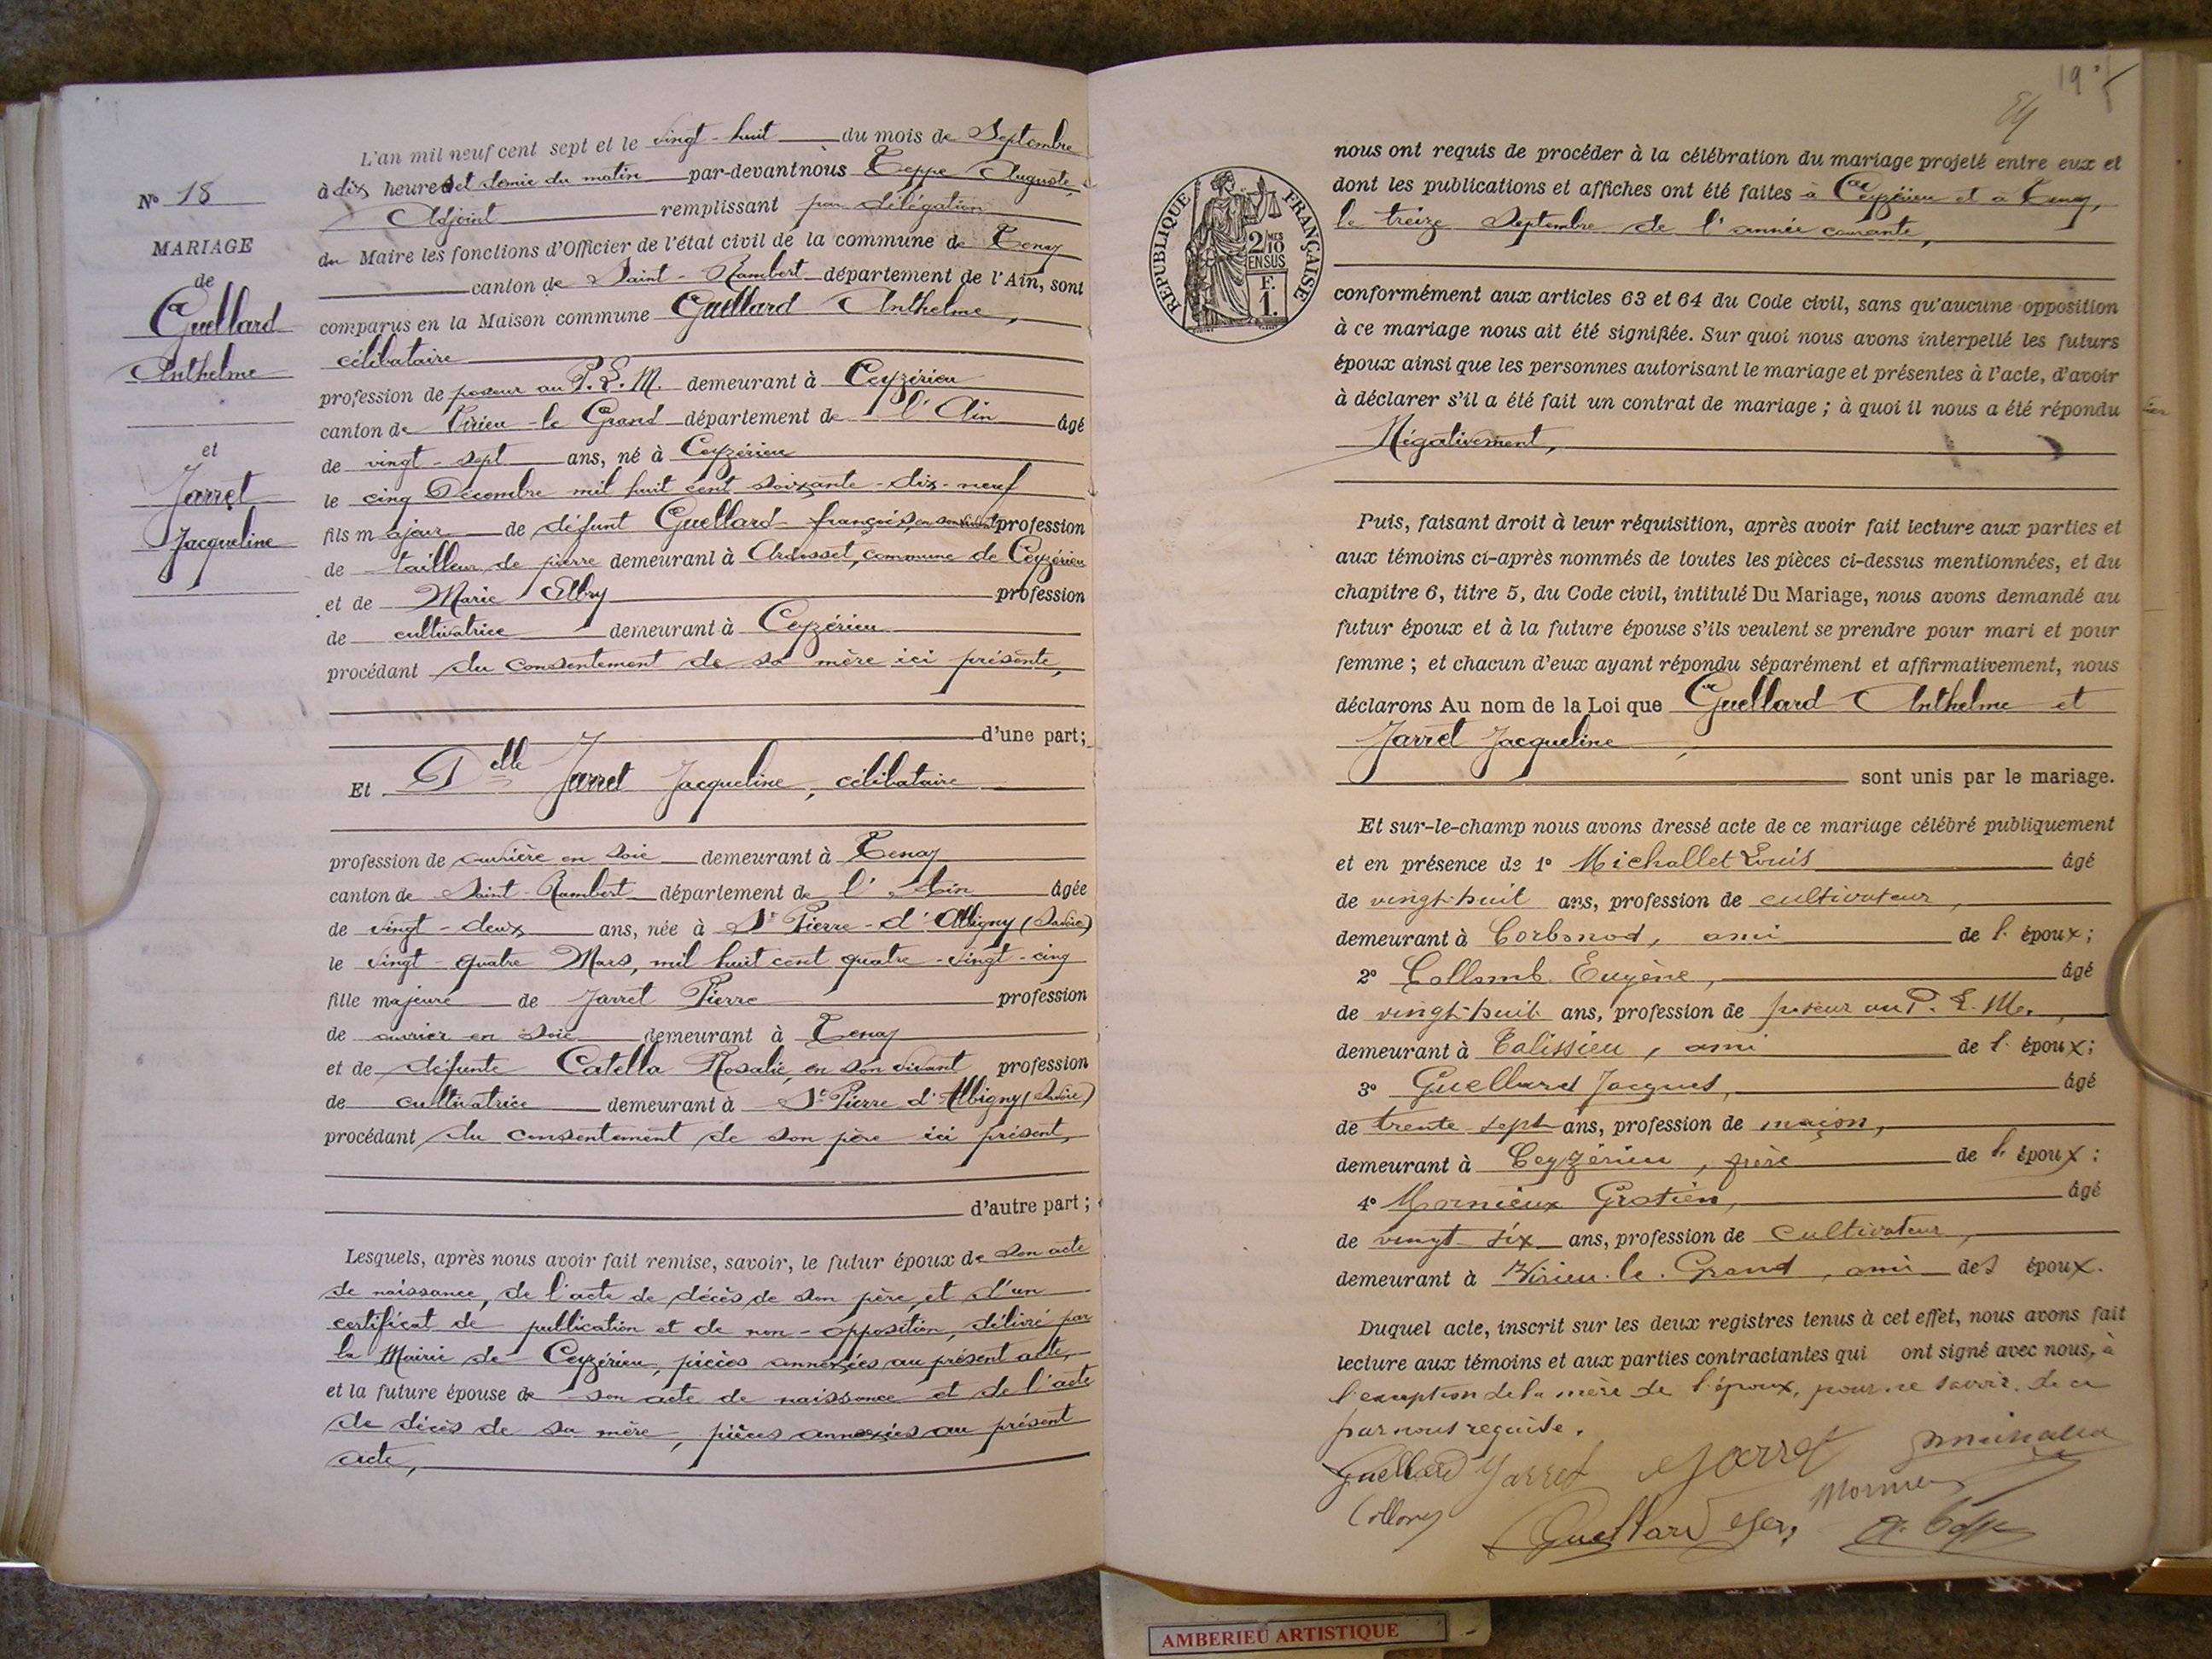 N° 18
MARIAGE
de
Guellard
Anthelme
et
Jarret
Jacqueline
L'an mil neuf cent sept et le vingt-huit du mois de Septembre
à dix heures et demie du matin par-devant nous Teppe Auguste,
Adjoint remplissant par délégation
du Maire les fonctions d'Officier de l'état civil de la commune de Tenay
canton de Saint-Rambert département de l'Ain, sont
comparus en la Maison commune Guellard Anthelme,
célibataire
profession de poseur au P.L.M. demeurant à Ceyzérieu
canton de Virieu-le-Grand département de l'Ain âgé
de vingt-sept ans, né à Ceyzérieu
le cinq Décembre mil huit cent soixante-dix-neuf
fils majeur de défunt Guellard françois, en son vivant profession
de tailleur de pierre demeurant à Ardosset, commune de Ceyzérieu
et de Marie Elby profession
de cultivatrice demeurant à Ceyzérieu
procédant du consentement de sa mère ici présente,
d'une part;
Et Delle Jarret Jacqueline, célibataire
profession de ouvrière en soie demeurant à Tenay
canton de Saint-Rambert département de l'Ain âgée
de vingt-deux ans, née à St Pierre-d'Albigny (Savoie)
le vingt-quatre Mars, mil huit cent quatre-vingt-cinq
fille majeure de Jarret Pierre profession
de ouvrier en soie demeurant à Tenay
et de défunte Catella Rosalie, en son vivant profession
de cultivatrice demeurant à St Pierre d'Albigny (Savoie)
procédant du consentement de son père ici présent,
d'autre part;
Lesquels, après nous avoir fait remise, savoir, le futur époux de son acte
de naissance, de l'acte de décès de son père, et d'un
certificat de publication et de non-opposition, délivré par
la Mairie de Ceyzérieu, pièces annexées au présent acte,
et la future épouse de son acte de naissance et de l'acte
de décès de sa mère, pièces annexées au présent
acte,
19
RÉPUBLIQUE FRANÇAISE
2/10
EN SUS
F.
1.
nous ont requis de procéder à la célébration du mariage projeté entre eux et
dont les publications et affiches ont été faites à Ceyzérieu et à Tenay,
le treize Septembre de l'année courante,
conformément aux articles 63 et 64 du Code civil, sans qu'aucune opposition
à ce mariage nous ait été signifiée. Sur quoi nous avons interpellé les futurs
époux ainsi que les personnes autorisant le mariage et présentes à l'acte, d'avoir
à déclarer s'il a été fait un contrat de mariage; à quoi il nous a été répondu
Négativement,
Puis, faisant droit à leur réquisition, après avoir fait lecture aux parties et
aux témoins ci-après nommés de toutes les pièces ci-dessus mentionnées, et du
chapitre 6, titre 5, du Code civil, intitulé Du Mariage, nous avons demandé au
futur époux et à la future épouse s'ils veulent se prendre pour mari et pour
femme; et chacun d'eux ayant répondu séparément et affirmativement, nous
déclarons Au nom de la Loi que Guellard Anthelme et
Jarret Jacqueline,
sont unis par le mariage.
Et sur-le-champ nous avons dressé acte de ce mariage célébré publiquement
et en présence de 1° Michallet Louis âgé
de vingt-huit ans, profession de cultivateur,
demeurant à Corbonod, ami de l'époux;
2° Collomb Eugène, âgé
de vingt-huit ans, profession de poseur au P.L.M.,
demeurant à Talissieu, ami de l'époux;
3° Guellard Jacques, âgé
de trente-sept ans, profession de maçon,
demeurant à Ceyzérieu, frère de l'époux:
4° Mornieux Gratien, âgé
de vingt-six ans, profession de cultivateur,
demeurant à Virieu-le-Grand, ami des époux.
Duquel acte, inscrit sur les deux registres tenus à cet effet, nous avons fait
lecture aux témoins et aux parties contractantes qui ont signé avec nous, à
l'exception de la mère de l'époux, pour ne savoir, de ce
par nous requise.
Guellard Jarret Jarret
Guellard
AMBERIEU ARTISTIQUE